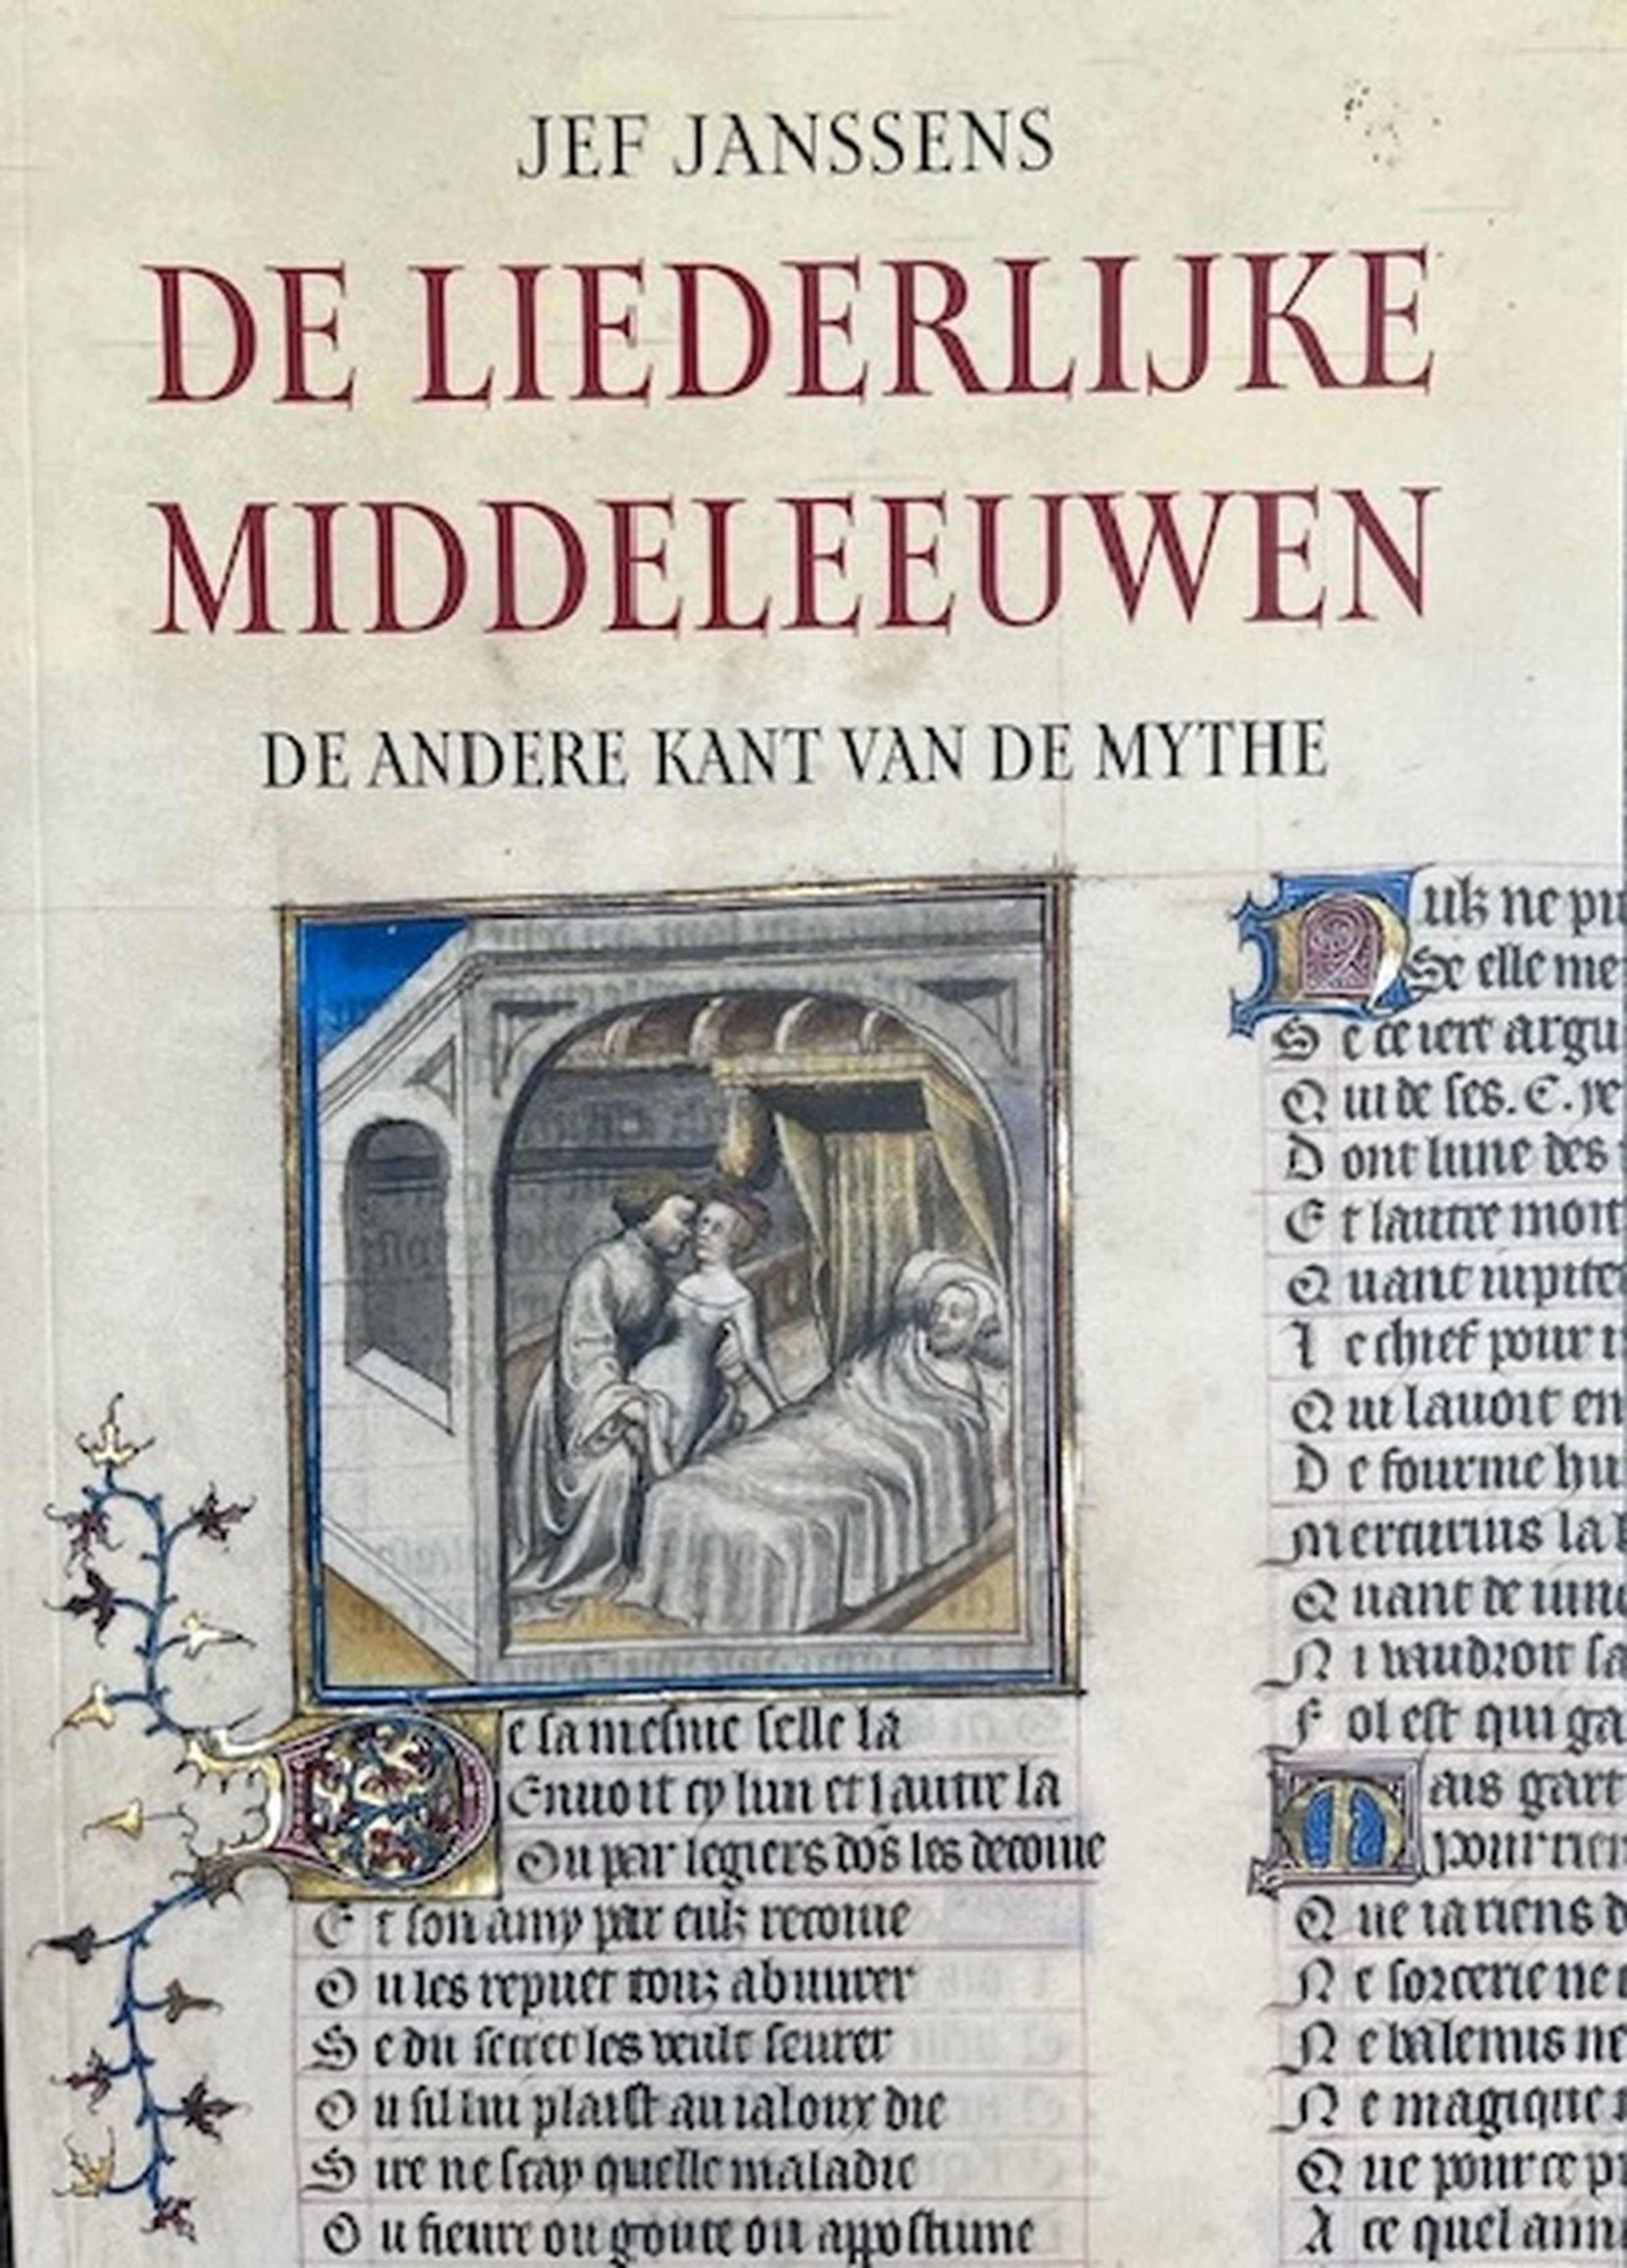 JEF JANSSENS
DE LIEDERLIJKE
MIDDELEEUWEN
DE ANDERE KANT VAN DE MYTHE
De la mesme selle la
Enuoit cy lun et lautre la
Ou par legiers dos les decoiue
Et son amy par eulz recoiue
Ou les repuet touz abuurer
Se du secret les veult seurer
Ou sil lui plaist au ialoux die
Sire ne scay quelle maladie
Ou fieure ou goute ou appostume
Se elle me
Se ce iert argu
Qui de ses . C . ye
Dont lune des
Et lautre
Quant iupiter
Le chief pour
Qui lauoit en
De fourme hu
Mercurius la
Quant de iuno
Ni vaudroit
Fol est qui ga
Mais gart
pour rien
Que ia riens
Ne sorcerie ne
Ne balenus ne
Ne magique
Que pour ce
A ce quel